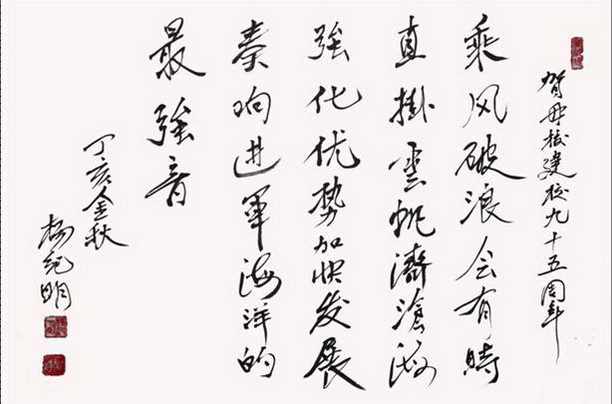 贺母校建校九十五周年
乘风破浪会有時
直掛雲帆濟滄海
强化优势加快发展
奏响进军海洋的
最强音
丁亥金秋
杨纪明